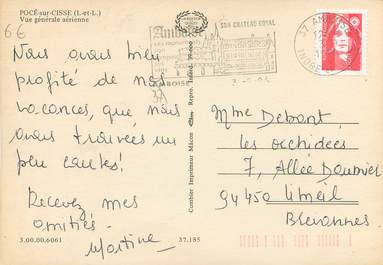 POCÉ-sur-CISSE (I.-et-L.)
Vue générale aérienne
6€
Nous avons bien
profité de nos
vacances, que nous
avons trouvées un
peu courtes!
Recevez mes
amitiés.
Martine
3.00.00.6061
37.185
Combier Imprimeur Mâcon
Amboise
SON CHATEAU ROYAL
37 AMBOISE
INDRE
Mme Debont
les orchidées
7, Allée Daumier
94450 Limeil
Brevannes